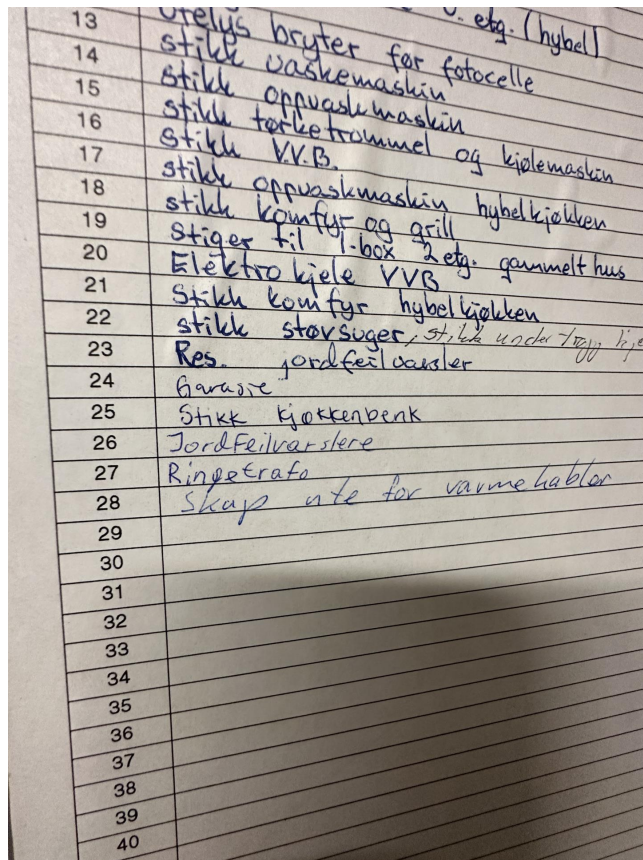 U. etg. (hybel)
Utelys bryter før fotocelle
13 stikk vaskemaskin
14 stikk oppvaskmaskin
15 stikk tørketrommel og kjølemaskin
16 stikk V.V.B.
17 stikk oppvaskmaskin hybelkjøkken
18 stikk komfyr og grill
19 Stiger til 1-box 2 etg. gammelt hus
20 Elektrokjele VVB
21 Stikk komfyr hybelkjøkken
22 stikk støvsuger, stikk under
23 Res. jordfeilvarsler
24 Garasje
25 Stikk kjøkkenbenk
26 Jordfeilvarslere
27 Ringetrafo
28 Skap ute for varmekabler
29
30
31
32
33
34
35
36
37
38
39
40